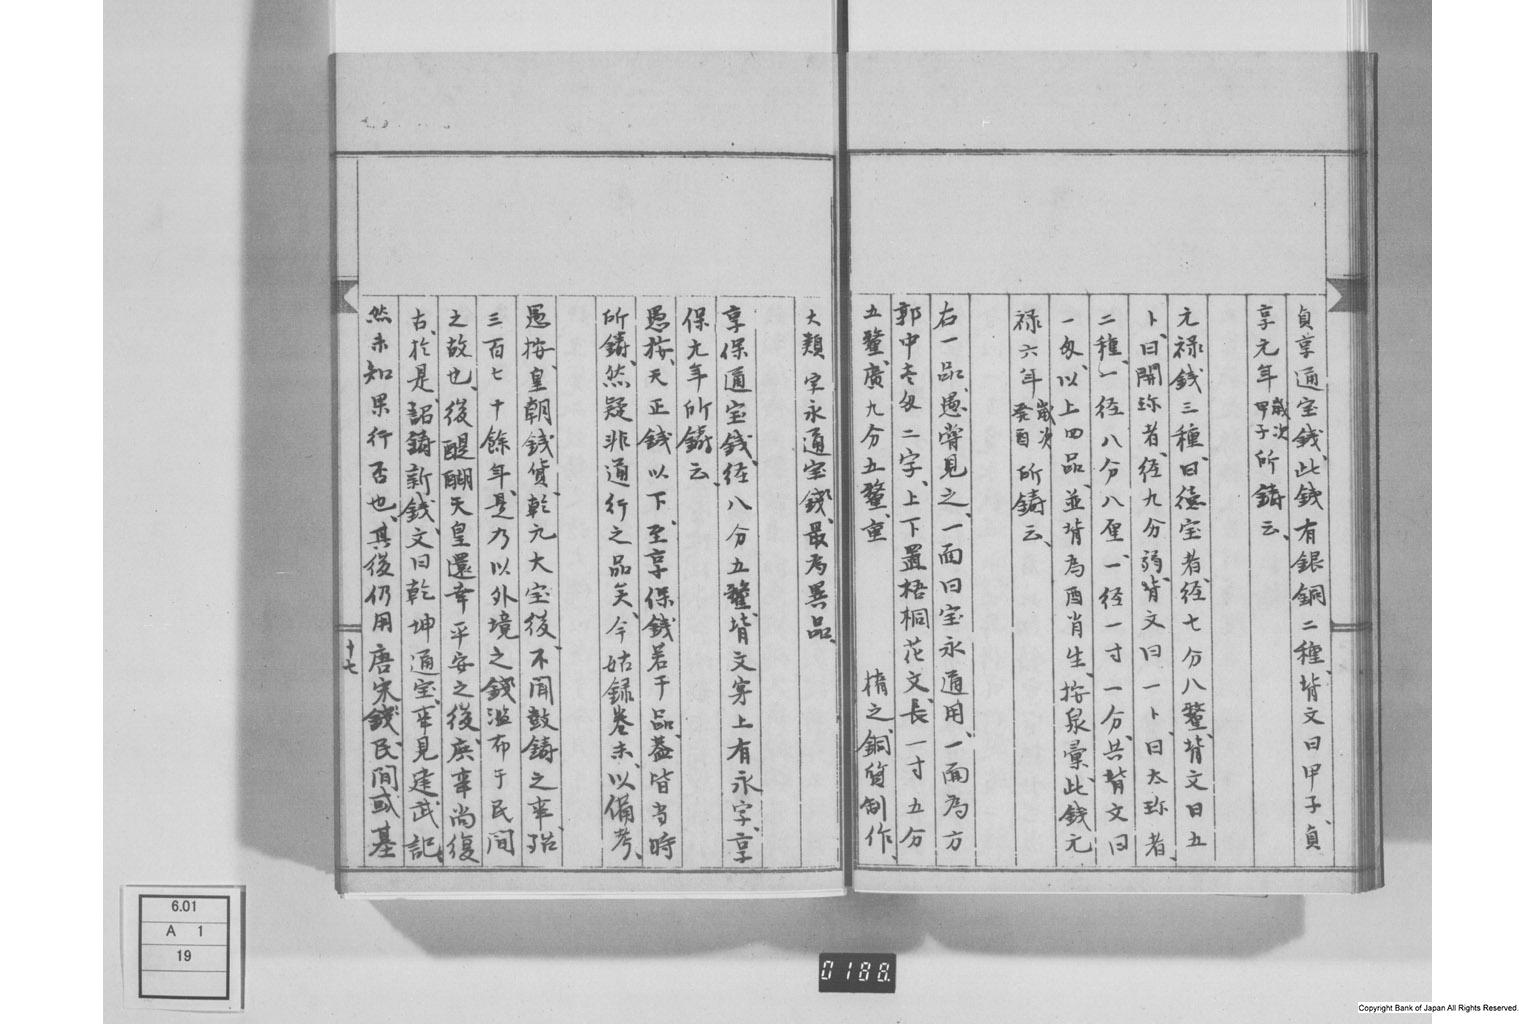 貞享通宝錢、此錢有銀銅二種、背文曰甲子、貞
享元年歳次甲子所鋳云、
元禄錢三種、曰德宝者、径七分八釐、背文曰五
卜、曰開珎者、径九分弱、背文曰一卜、曰太珎者、
二種、一径八分八厘、一径一寸一分、共背文曰
一匁、以上四品、並背為酉肖生、按泉彙、此錢元
禄六年歳次癸酉所鋳云、
右一品、愚嘗見之、一面曰宝永通用、一面為方
郭、中壱匁二字、上下置梧桐花文、長一寸五分
五釐、廣九分五釐、重　　　楕之銅質制作、
大類宝永通宝錢、最為異品、
享保通宝錢、径八分五釐、背文穿上有永字、享
保九年所鋳云、
愚按、天正錢以下、至享保錢若干品、蓋皆当時
所鋳、然疑非通行之品矣、今姑録巻末、以備考、
愚按、皇朝錢貨、乾元大宝後、不聞鼓鋳之事、殆
三百七十餘年、是乃以外境之錢滥布于民間
之故也、後醍醐天皇還幸平安之後、庶事尚復
古、於是、詔鋳新錢、文曰乾坤通宝、事見建武記、
然未知果行否也、其後仍用唐宋錢、民間或基
十七
6.01
A 1
19
0188
Copyright Bank of Japan All Rights Reserved.